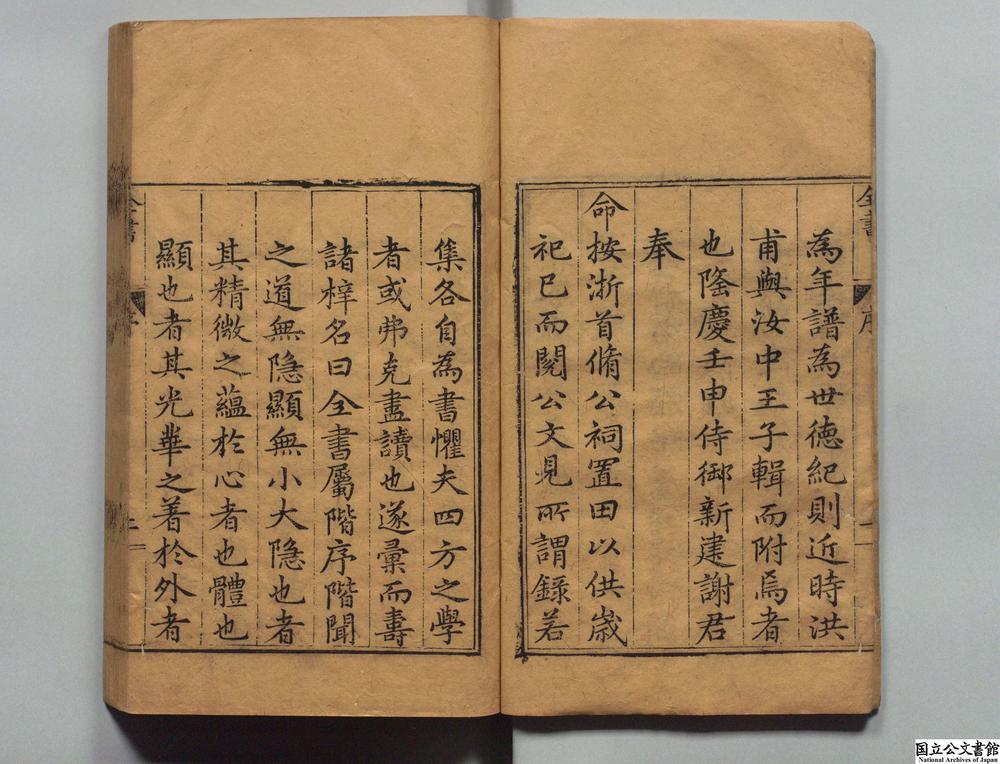 為年譜為世德紀則近時洪
甫與汝中王子輯而附焉者
也隆慶壬申侍御新建謝君
奉
命按浙首脩公祠置田以供歲
祀已而閱公文見所謂錄若
全書
序
集各自為書懼夫四方之學
者或弗克盡讀也遂彙而壽
諸梓名曰全書屬階序階聞
之道無隱顯無小大隱也者
其精微之蘊於心者也體也
顯也者其光華之著於外者
全書
序
二
国立公文書館
National Archives of Japan